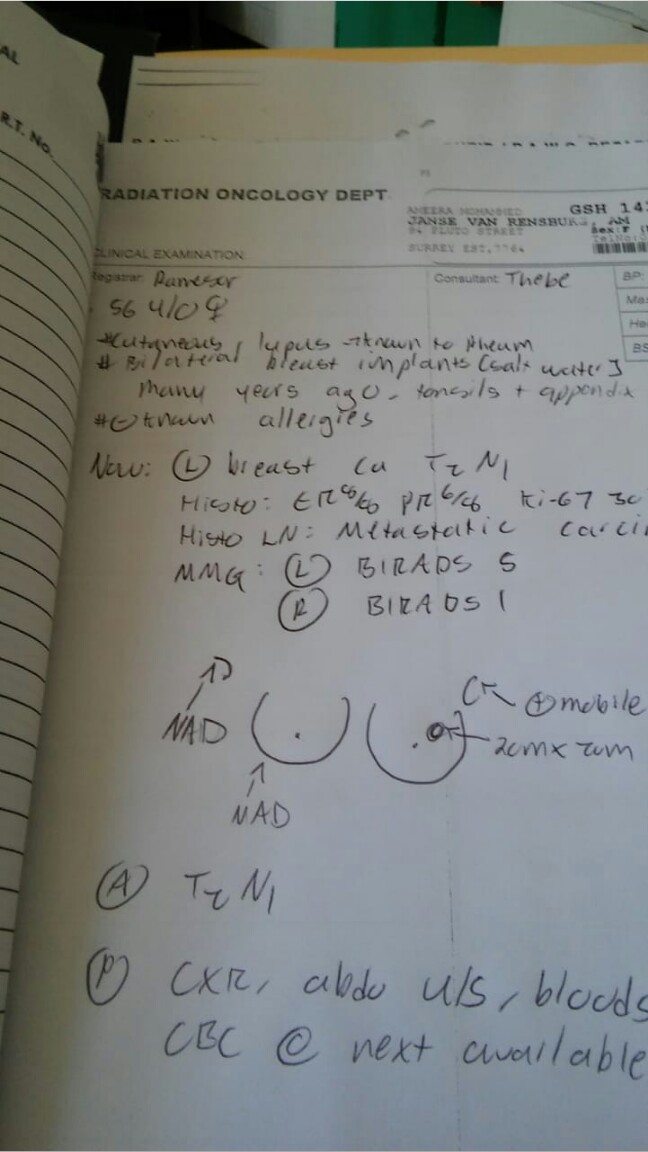 AL
R.T. No.
RADIATION ONCOLOGY DEPT.
AMEERA MOHAMMED
GSH 14
JANSE VAN RENSBURG, AM
84 PLUTO STREET
Sex:F
SURREY EST, 7764
CLINICAL EXAMINATION:
Registrar: Rameser
Consultant: Thebe
BP:
56 y/o ♀
# Cutaneous lupus → known to Rheum
# Bilateral breast implants [salt water]
many years ago, tonsils + appendix
# ⊖ known allergies
Now: Ⓛ breast ca T2 N1
Histo: ER 8/8 PR 6/8 Ki-67 30
Histo LN: Metastatic carci
MMG: Ⓛ BIRADS 5
Ⓡ BIRADS 1
NAD
⊕ mobile
2cm x 2cm
NAD
Ⓐ T2 N1
Ⓟ CXR, abdo u/s, bloods
CBC @ next available